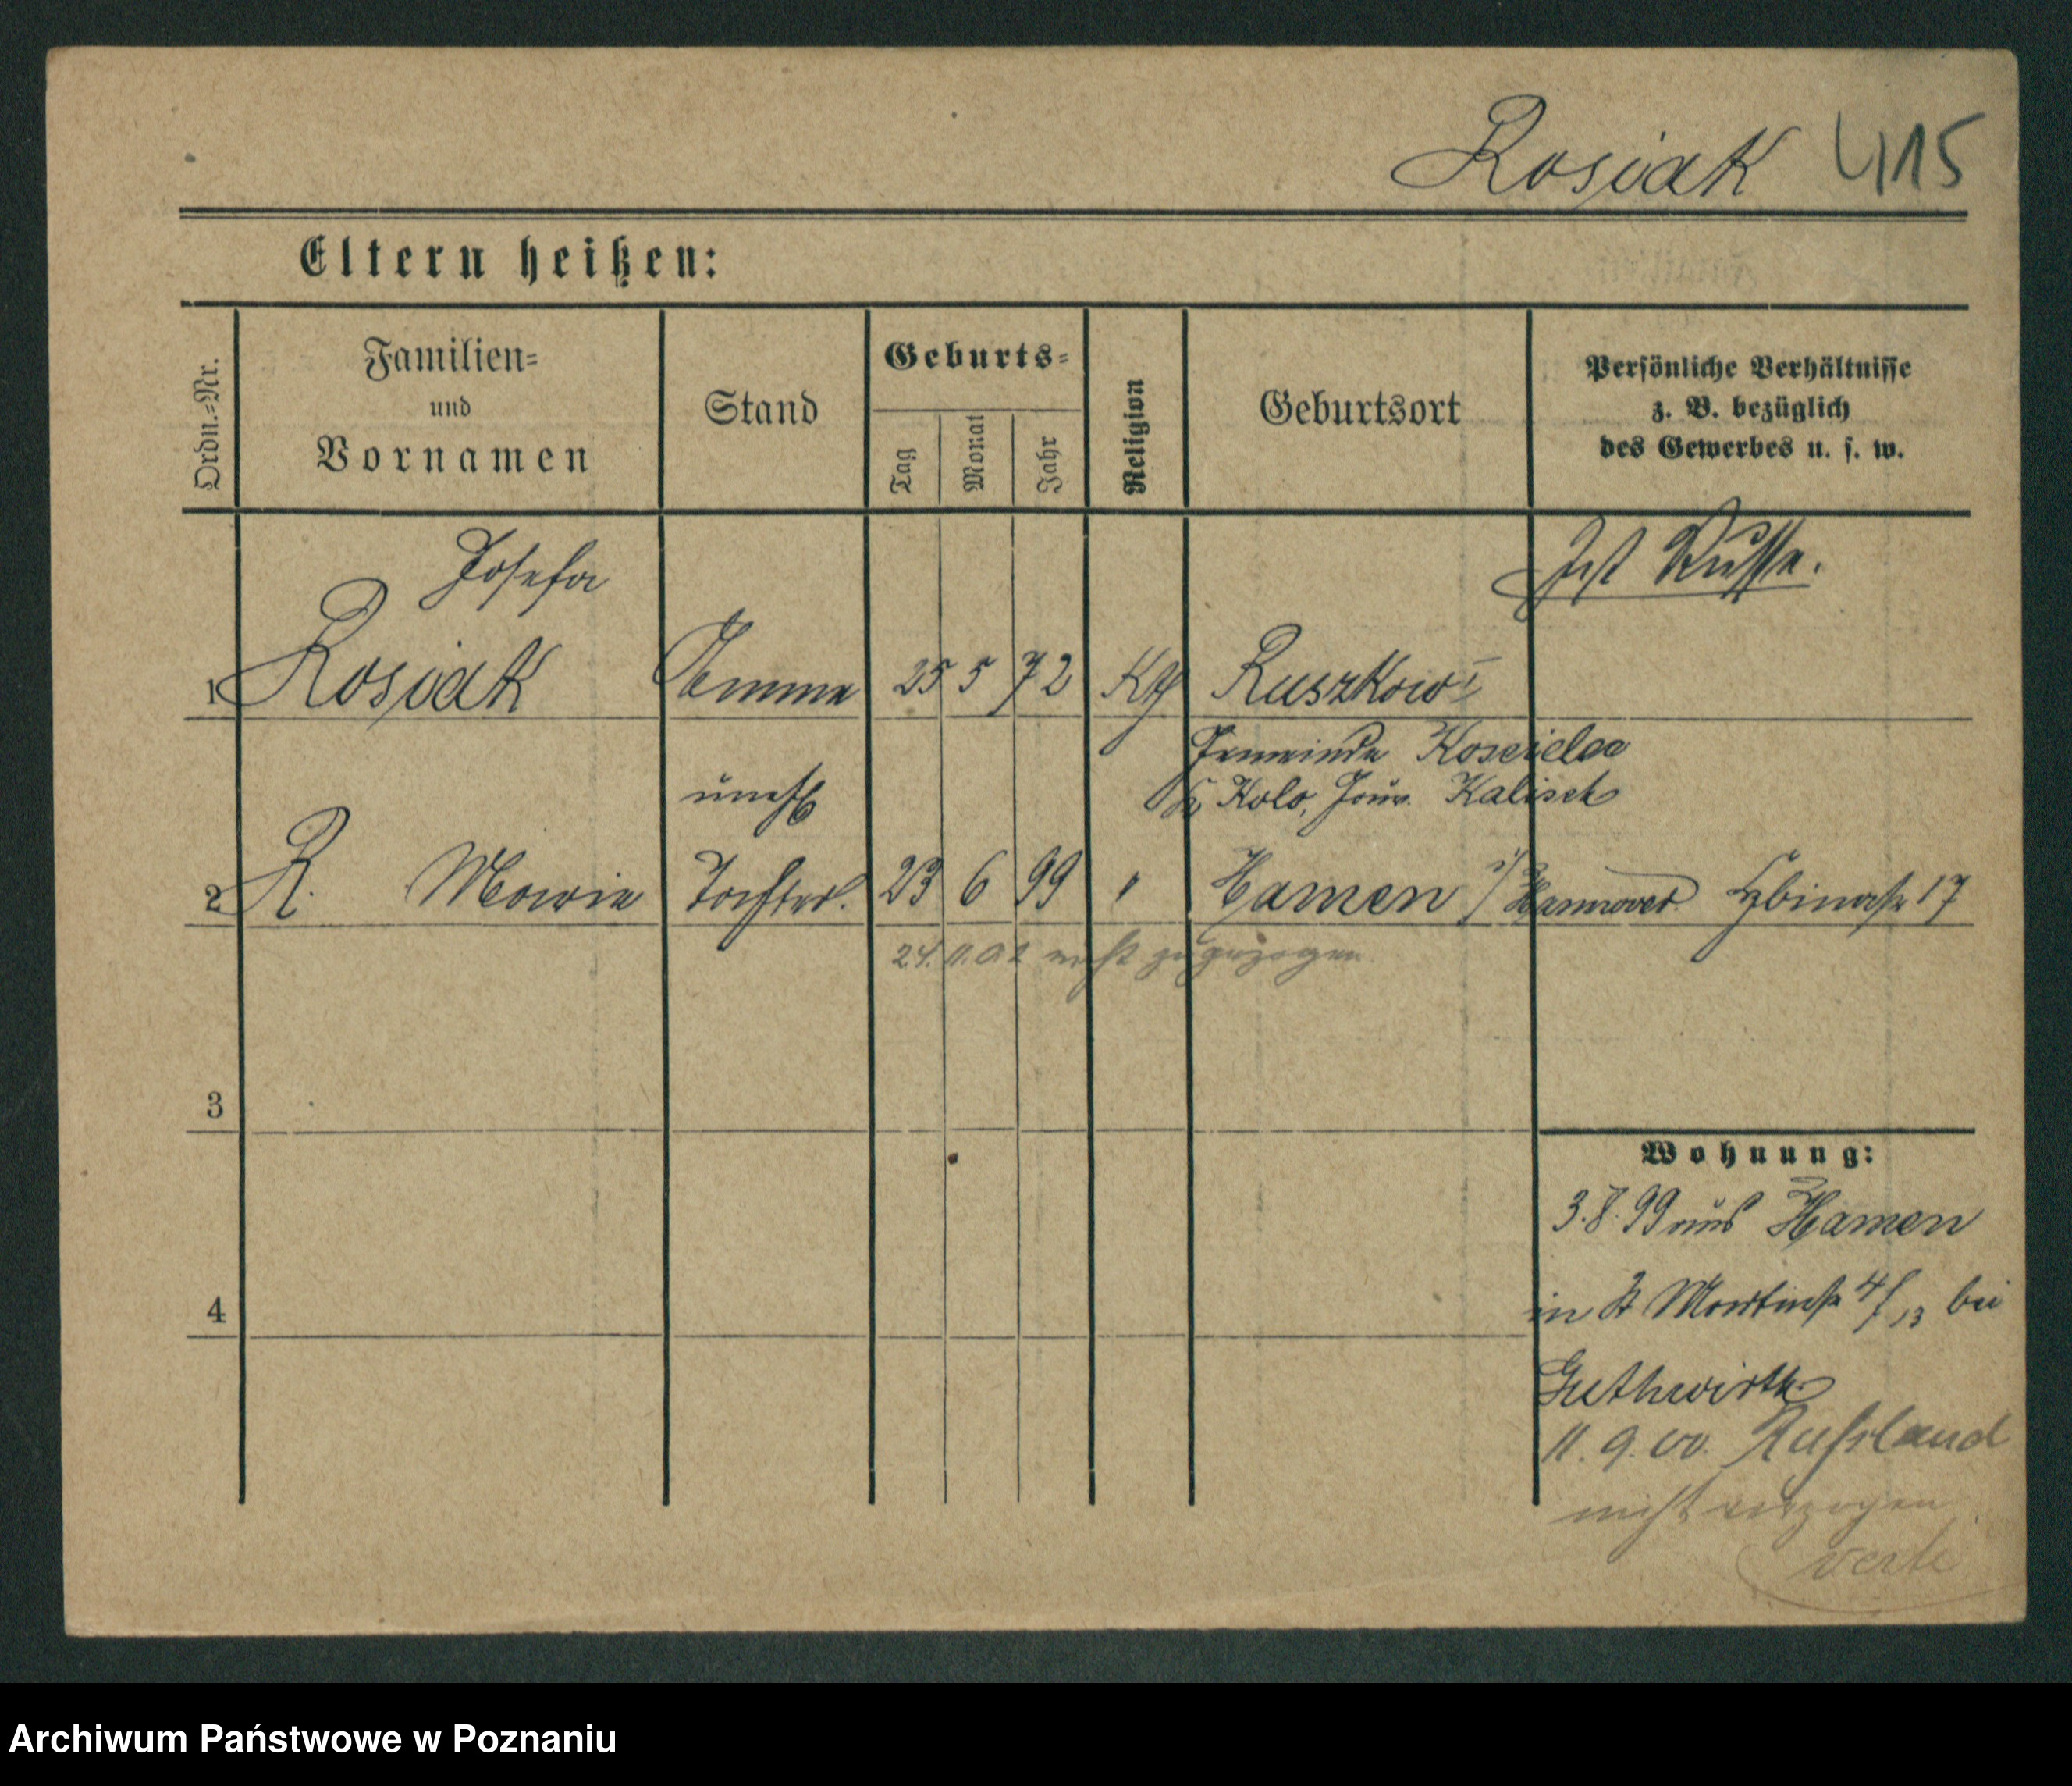 Rosiak 415
Eltern heißen:
Ordn.=Nr.
Familien=
und
Vornamen
Stand
Geburts=
Tag
Monat
Jahr
Religion
Geburtsort
Persönliche Verhältnisse
z. B. bezüglich
des Gewerbes u. s. w.
Josefa
Ist Russe.
1 Rosiak Amme 25 5 72 Kth Ruszkow I
Gemeinde Koscielec
Kr. Kolo, Gouv. Kalisch
unehl
2 R. Marie Tochter. 23 6 99 " Hamen i/ Hannover 17
24.11.02 nicht zugezogen
3
Wohnung:
3.8.99 aus Hamen
4
in St Martinstr 4/13 bei
Guthwirth
11.9.00. Russland
nicht verzogen
verte
Archiwum Państwowe w Poznaniu